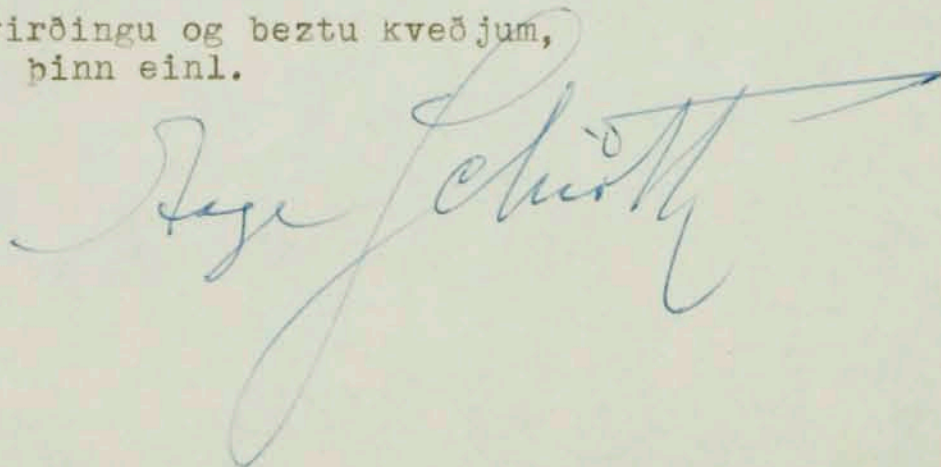 irðingu og beztu kveðjum,
þinn einl.
Aage Schiöth